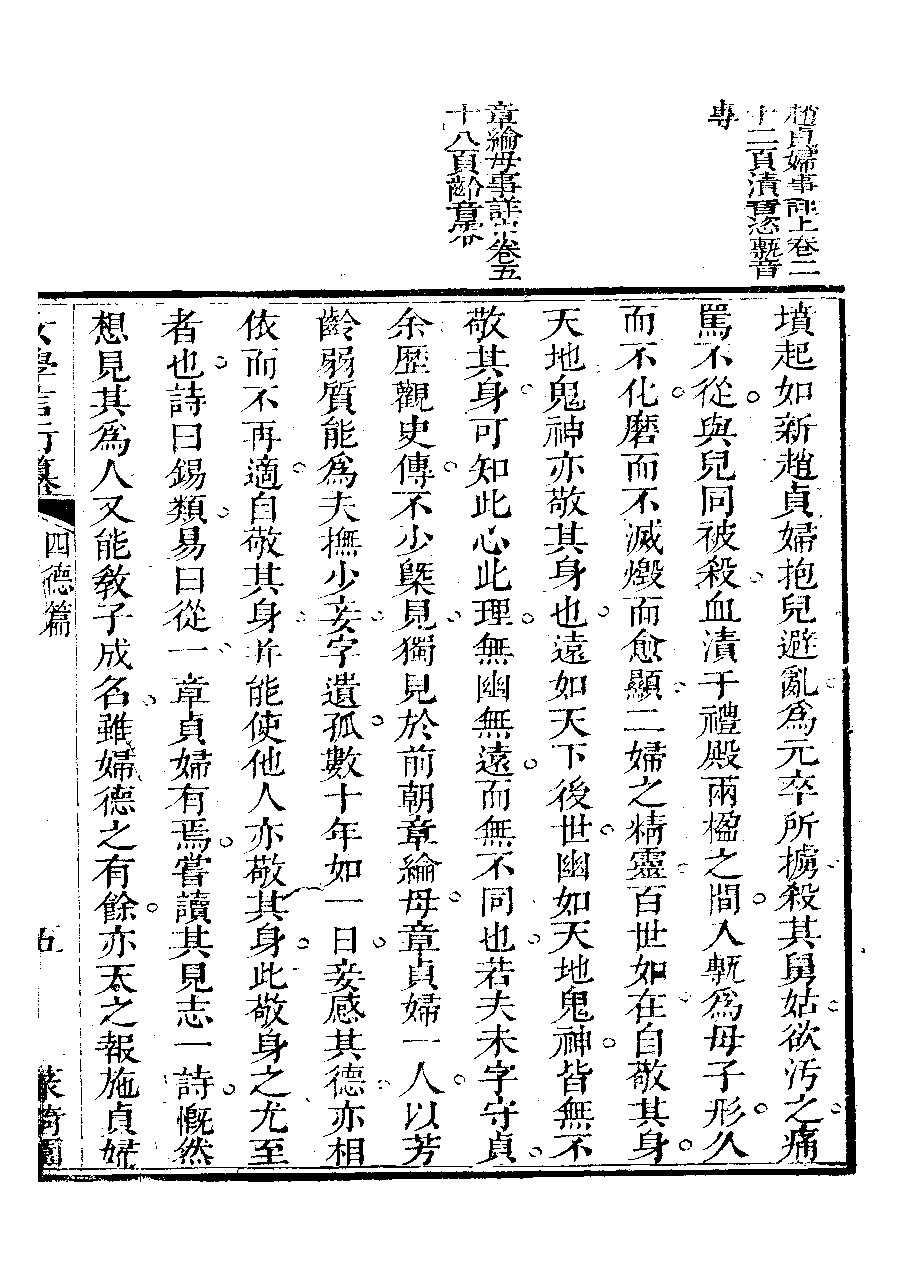 趙貞婦事詳上卷二
十二頁漬音恣甎音
專
章綸母事詳下卷五
十八頁齡音
墳起如新趙貞婦抱兒避亂為元卒所擄殺其舅姑欲汚之痛
罵不從與兒同被殺血漬于禮殿兩楹之間入甎為母子形久
而不化磨而不滅燬而愈顯二婦之精靈百世如在自敬其身
天地鬼神亦敬其身也遠如天下後世幽如天地鬼神皆無不
敬其身可知此心此理無幽無遠而無不同也若夫未字守貞
余歷觀史傳不少槩見獨見於前朝章綸母章貞婦一人以芳
齡弱質能為夫撫少妾字遺孤數十年如一日妾感其德亦相
依而不再適自敬其身并能使他人亦敬其身此敬身之尤至
者也詩曰錫類易曰從一章貞婦有焉嘗讀其見志一詩慨然
想見其為人又能敎子成名雖婦德之有餘亦天之報施貞婦
女學言行纂
四德篇
五